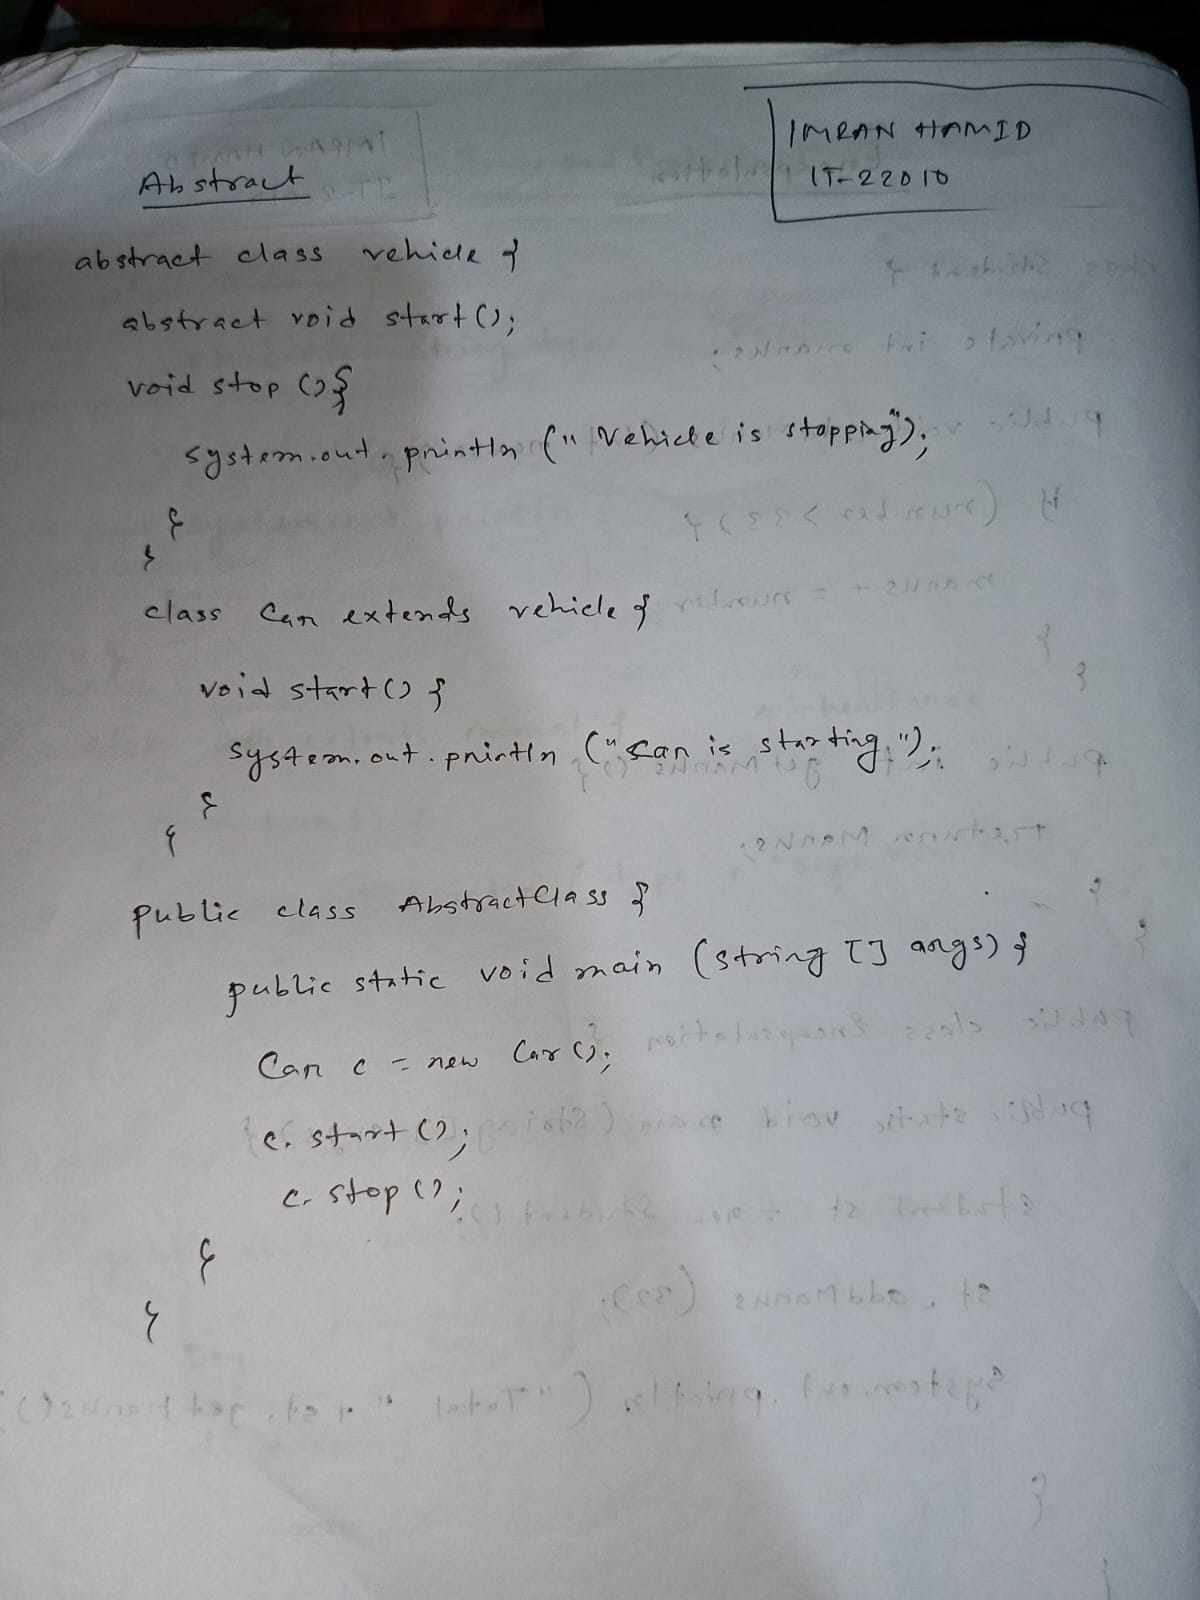 IMRAN HAMID
IT-22010
Abstract
abstract class vehicle {
abstract void start();
void stop (){
system.out.println ("Vehicle is stopping");
}
}
class Car extends vehicle {
void start() {
system.out.println ("Car is starting.");
}
}
public class AbstractClass {
public static void main (string [] args) {
Car c = new Car ();
c. start ();
c. stop ();
}
}